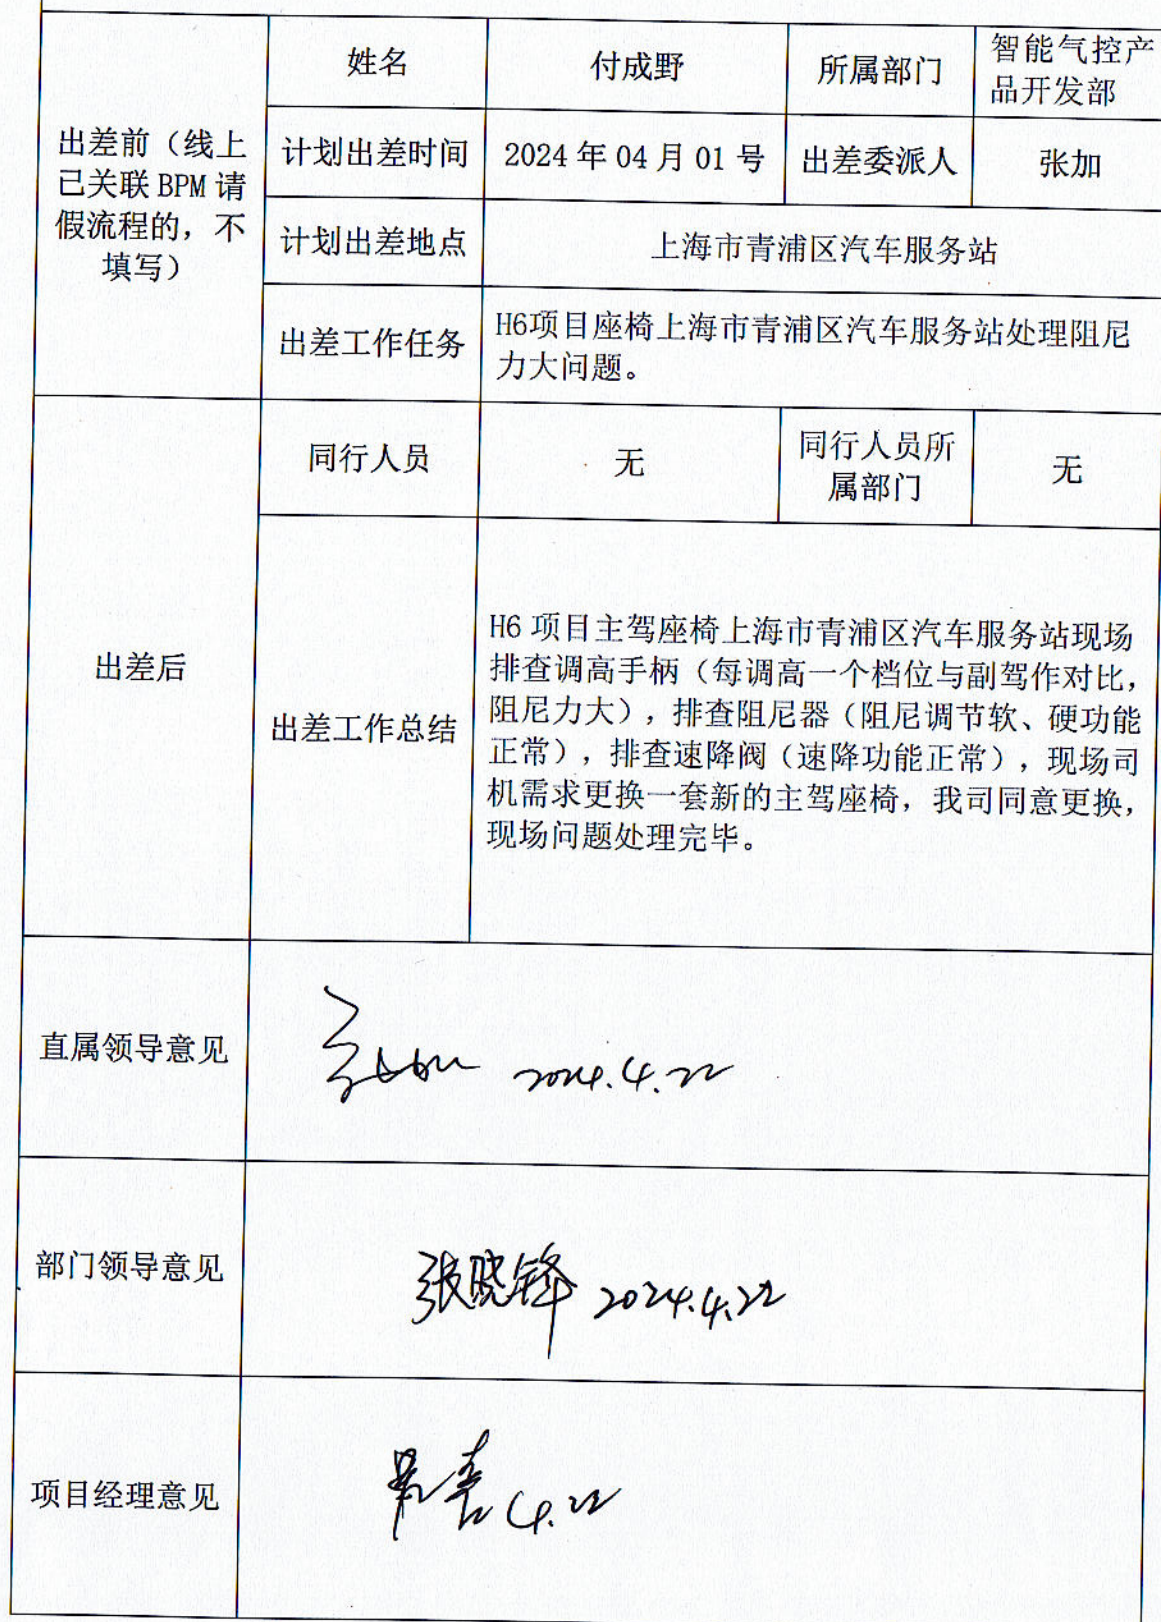 出差前（线上
已关联 BPM 请
假流程的，不
填写）
姓名
付成野
所属部门
智能气控产
品开发部
计划出差时间
2024 年 04 月 01 号
出差委派人
张加
计划出差地点
上海市青浦区汽车服务站
出差工作任务
H6项目座椅上海市青浦区汽车服务站处理阻尼
力大问题。
出差后
同行人员
无
同行人员所
属部门
无
出差工作总结
H6 项目主驾座椅上海市青浦区汽车服务站现场
排查调高手柄（每调高一个档位与副驾作对比，
阻尼力大），排查阻尼器（阻尼调节软、硬功能
正常），排查速降阀（速降功能正常），现场司
机需求更换一套新的主驾座椅，我司同意更换，
现场问题处理完毕。
直属领导意见
2024.4.22
部门领导意见
张晓锋 2024.4.22
项目经理意见
4.22